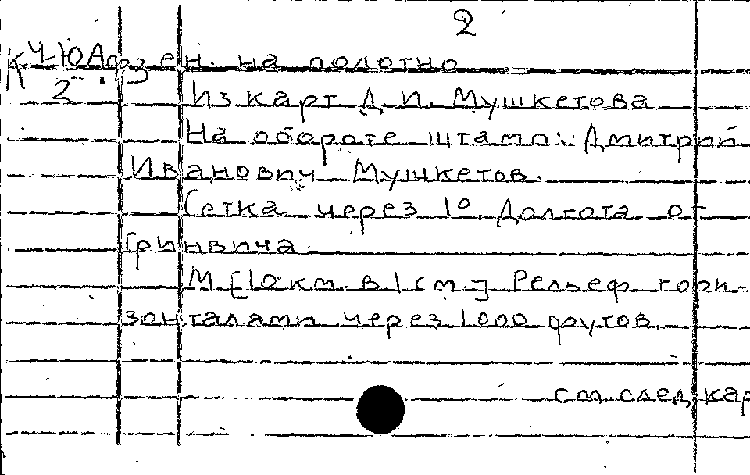 2
К Ч-ЮАфз ен. на полотно
2
Из карт Д. И. Мушкетова
На обороте штамп: Дмитрий
Иванович Мушкетов.
Сетка через 1° Долгота от
Гринвича
М [10 км в 1 см] Рельеф гори-
зонталями через 1000 футов.
см след. кар